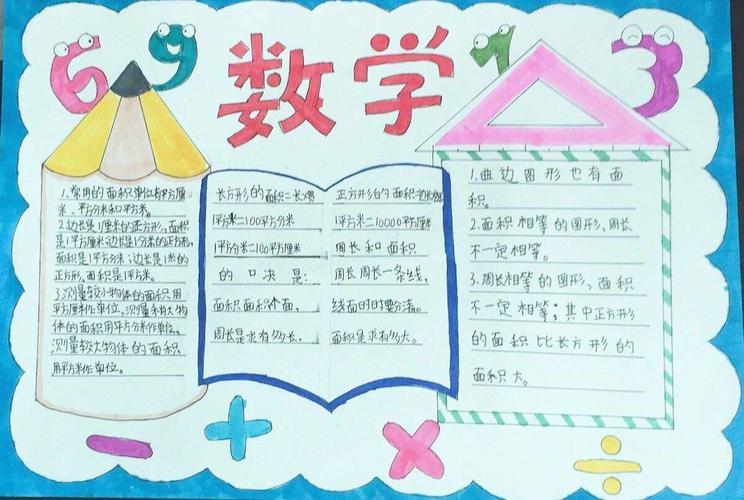 6 9 数学 3
1.常用的面积单位有平方厘
米、平方分米和平方米。
2.边长是1厘米的正方形,面积
是1平方厘米边长是1分米的正方形,
面积是1平方分米;边长是1米的
正方形,面积是1平方米。
3.测量较小物体的面积用
平方厘米作单位,测量大物
体的面积用平方分米作单位,
测量较大物体的面积
用平方米作单位。
长方形的面积=长×宽
1平方米=100平方分米
1平方分米=100平方厘米
的口决是:
面积面积个面,
周长是求有多长,
正方形的面积=边长×边长
1平方米=10000平方厘米
周长和面积
周长周长一条线,
线面时时要分清。
面积是求有多大。
1.曲边图形也有面
积。
2.面积相等的图形,周长
不一定相等。
3.周长相等的图形,面积
不一定相等;其中正方形
的面积比长方形的
面积大。
- + × ÷